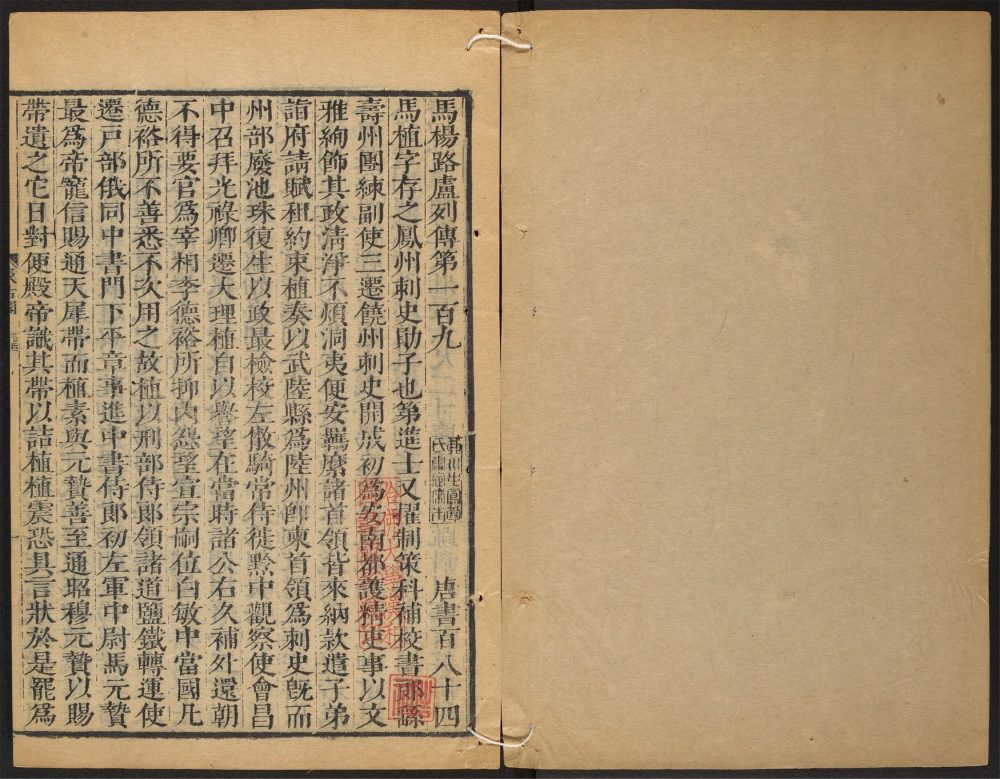 馬楊路盧列傳第一百九 唐書百八十四
馬植字存之鳳州刺史助子也第進士又擢制策科補校書郎繇
壽州團練副使三遷饒州刺史開成初為安南都護精吏事以文
雅絢飾其政清淨不煩洞夷便安羈縻諸首領皆來納款遣子弟
詣府請賦租約束植奏以武陸縣為陸州即柬首領為刺史旣而
州部廢池珠復生以政最檢校左散騎常侍徙黔中觀察使會昌
中召拜光祿卿遷大理植自以譽望在當時諸公右久補外還朝
不得要官為宰相李德裕所抑內怨望宣宗嗣位白敏中當國凡
德裕所不善悉不次用之故植以刑部侍郎領諸道鹽鐵轉運使
遷戶部俄同中書門下平章事進中書侍郎初左軍中尉馬元贄
最為帝寵信賜通天犀帶而植素與元贄善至通昭穆元贄以賜
帶遺之它日對便殿帝識其帶以詰植植震恐具言狀於是罷為